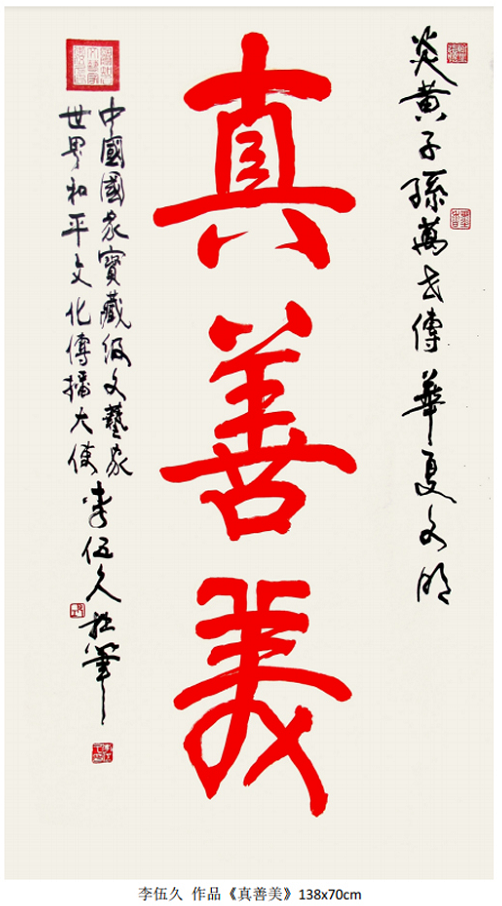 炎黄子孫萬世傳華夏文明
真善美
中國國家寳藏级文藝家
世界和平文化傳播大使
李伍久拙筆
李伍久 作品《真善美》138x70cm